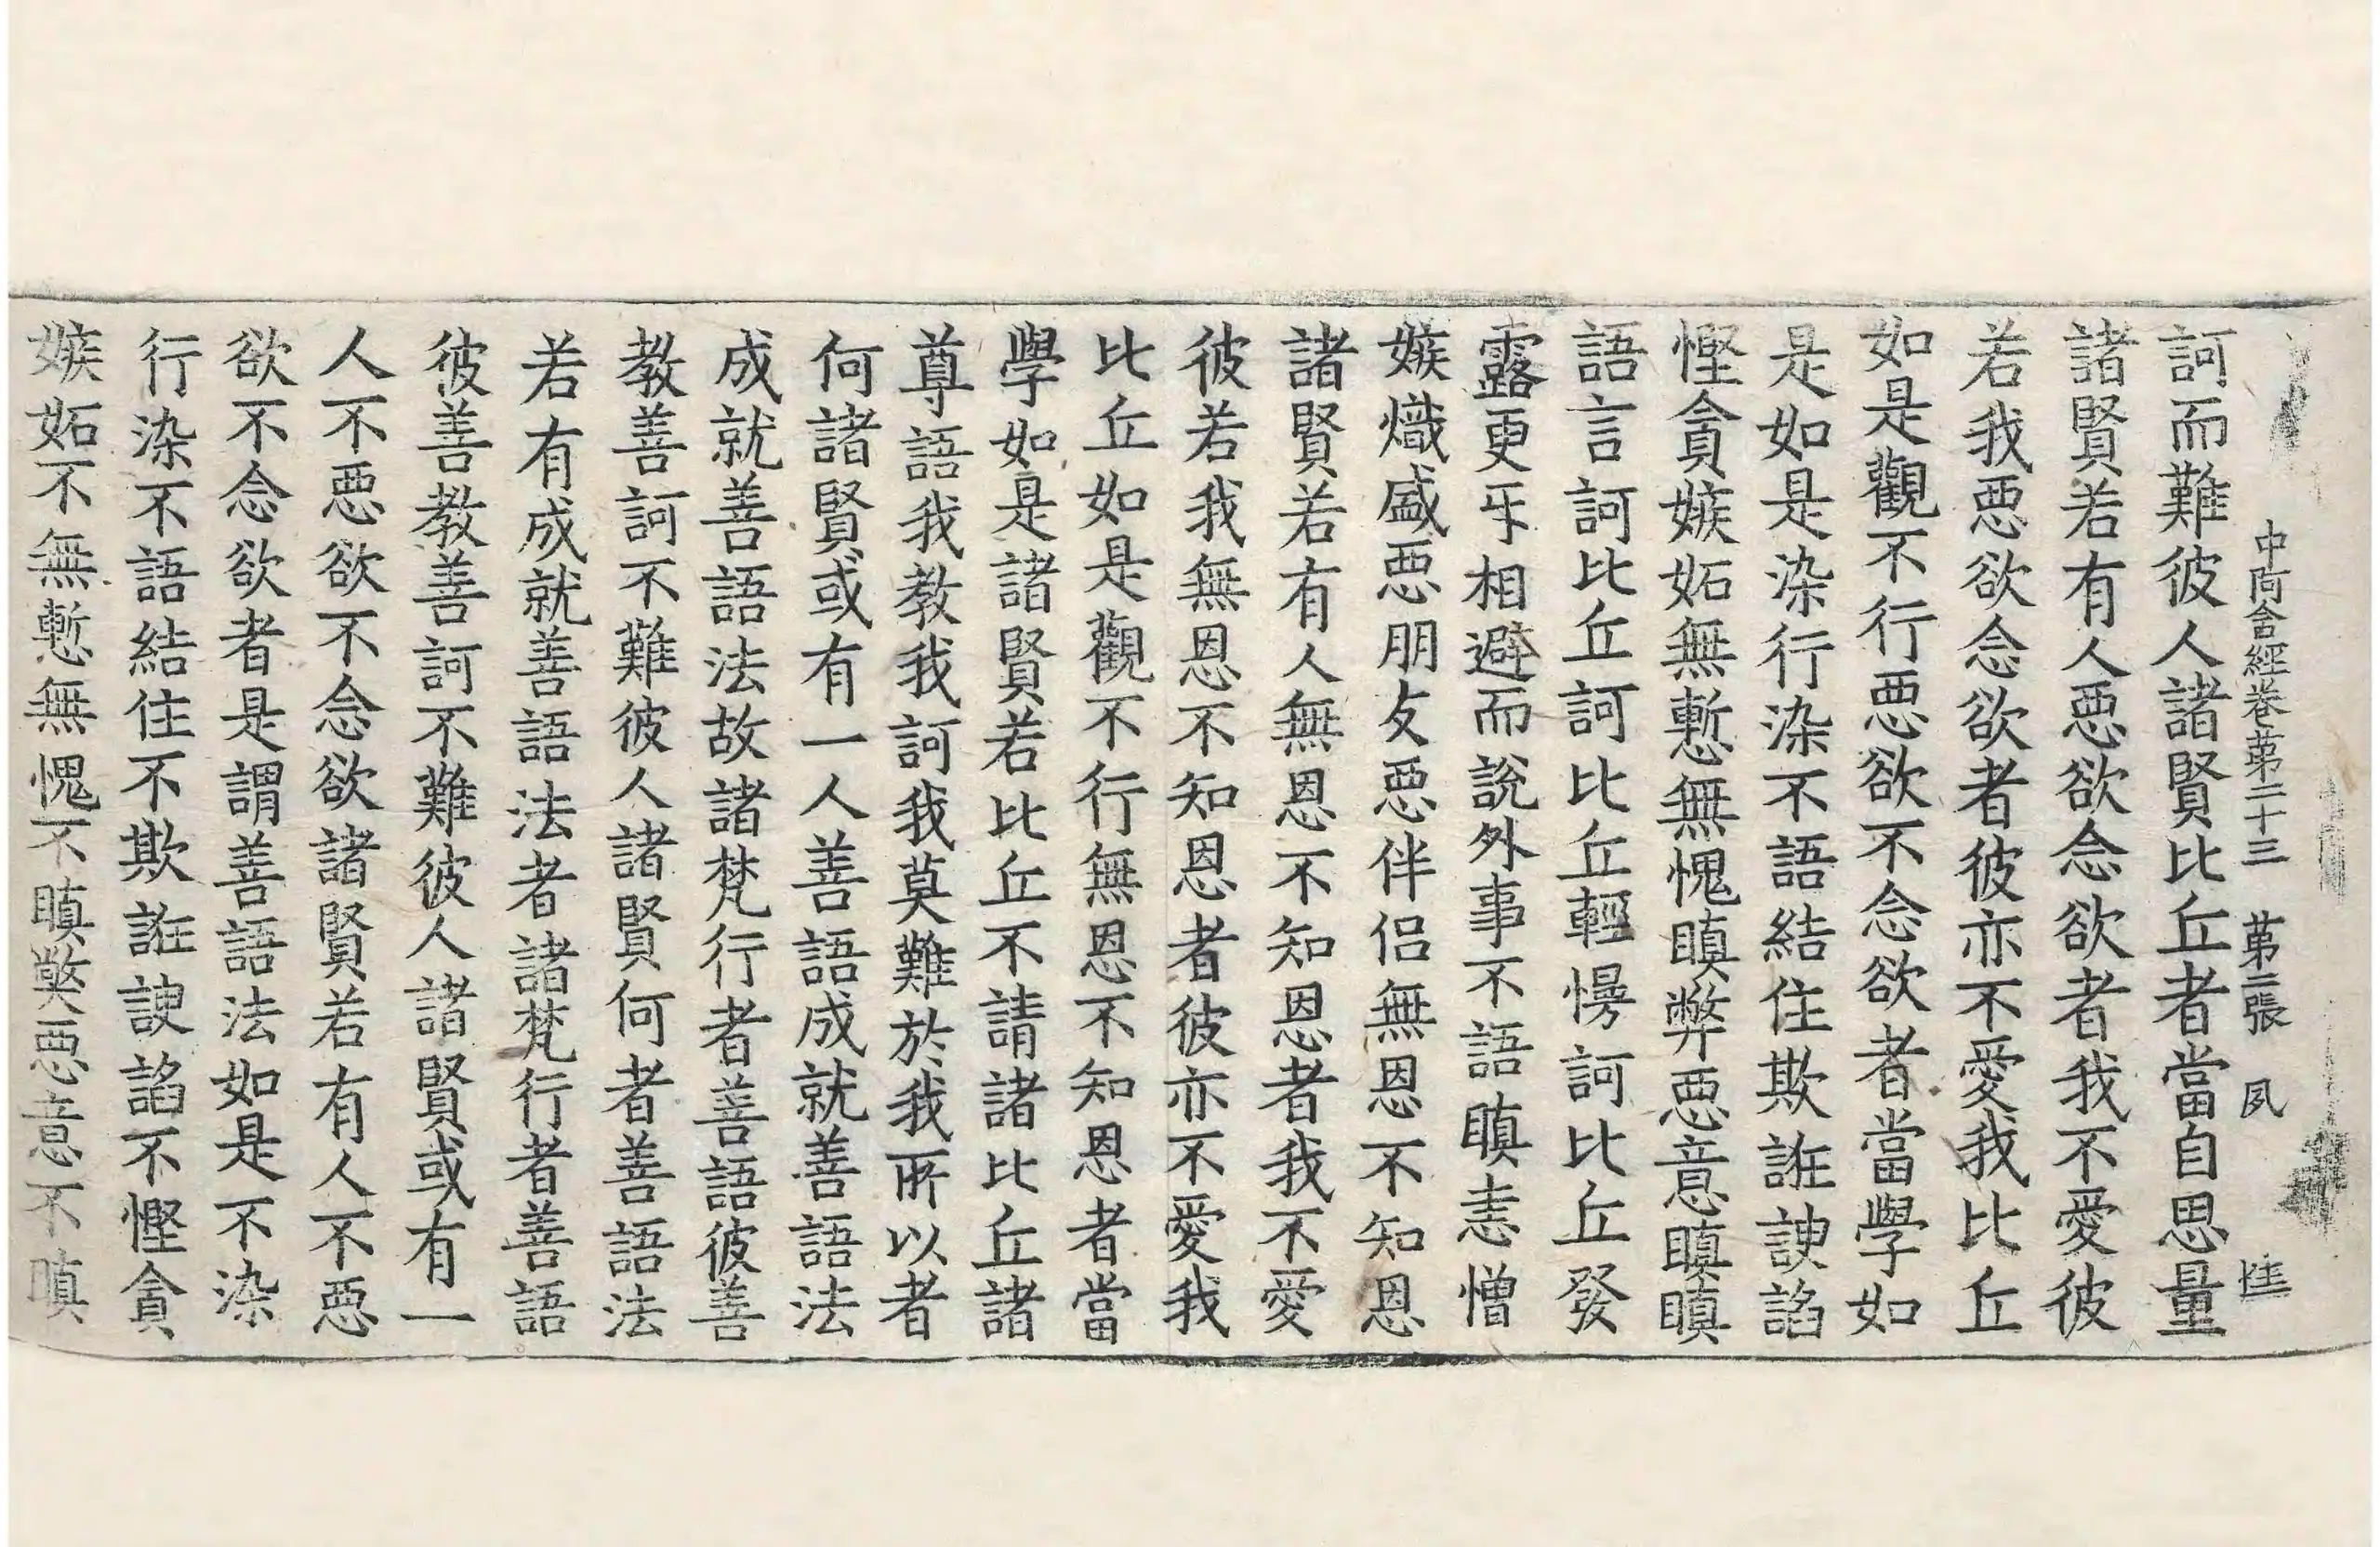 中阿含經卷苐二十三 苐二張 夙
訶而難彼人諸賢比丘者當自思量
諸賢若有人惡欲念欲者我不愛彼
若我惡欲念欲者彼亦不愛我比丘
如是觀不行惡欲不念欲者當學如
是如是染行染不語結住欺誑諛諂
慳貪嫉妬無慙無愧瞋弊惡意瞋瞋
語言訶比丘訶比丘輕慢訶比丘發
露更㸦相避而說外事不語瞋恚憎
嫉熾盛惡朋友惡伴侶無恩不知恩
諸賢若有人無恩不知恩者我不愛
彼若我無恩不知恩者彼亦不愛我
比丘如是觀不行無恩不知恩者當
學如是諸賢若比丘不請諸比丘諸
尊語我教我訶我莫難於我所以者
何諸賢或有一人善語成就善語法
成就善語法故諸梵行者善語彼善
教善訶不難彼人諸賢何者善語法
若有成就善語法者諸梵行者善語
彼善教善訶不難彼人諸賢或有一
人不惡欲不念欲諸賢若有人不惡
欲不念欲者是謂善語法如是不染
行染不語結住不欺誑諛諂不慳貪
嫉妬不無慙無愧不瞋弊惡意不瞋